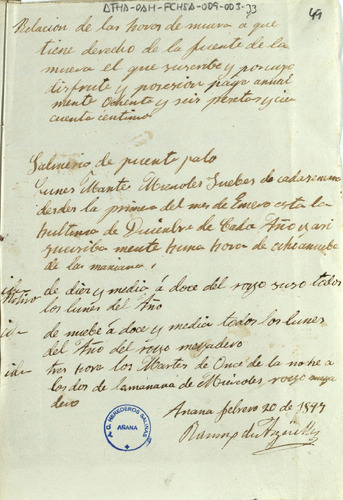 ATHA-DAH-FCHSA-009-003-33
49
Relacion de las horas de muera a que
tiene derecho de la fuente de la
muera el que suscribe y por cuyo
disfrute y posesion paga anual
mente ochenta y seis pesetas y cin
cuenta centimos
de puente palo
Lunes Martes Miercoles Juebes de cada semana
desde la primera del mes de Enero asta la
hultima de Diciembre de Cada Año y asi
mente huna hora de ocho a nuebe
de la mañana.
de diez y media á doce del royo suso todos
los lunes del Año
id= de nuebe á doce y media todos los lunes
del Año del royo
id= tres hora los Martes de Once de la noche a
las dos de la mañana de Miercoles royo
dero
Añana febrero 20 de 1897
A. C. HEREDEROS SALINAS
AÑANA